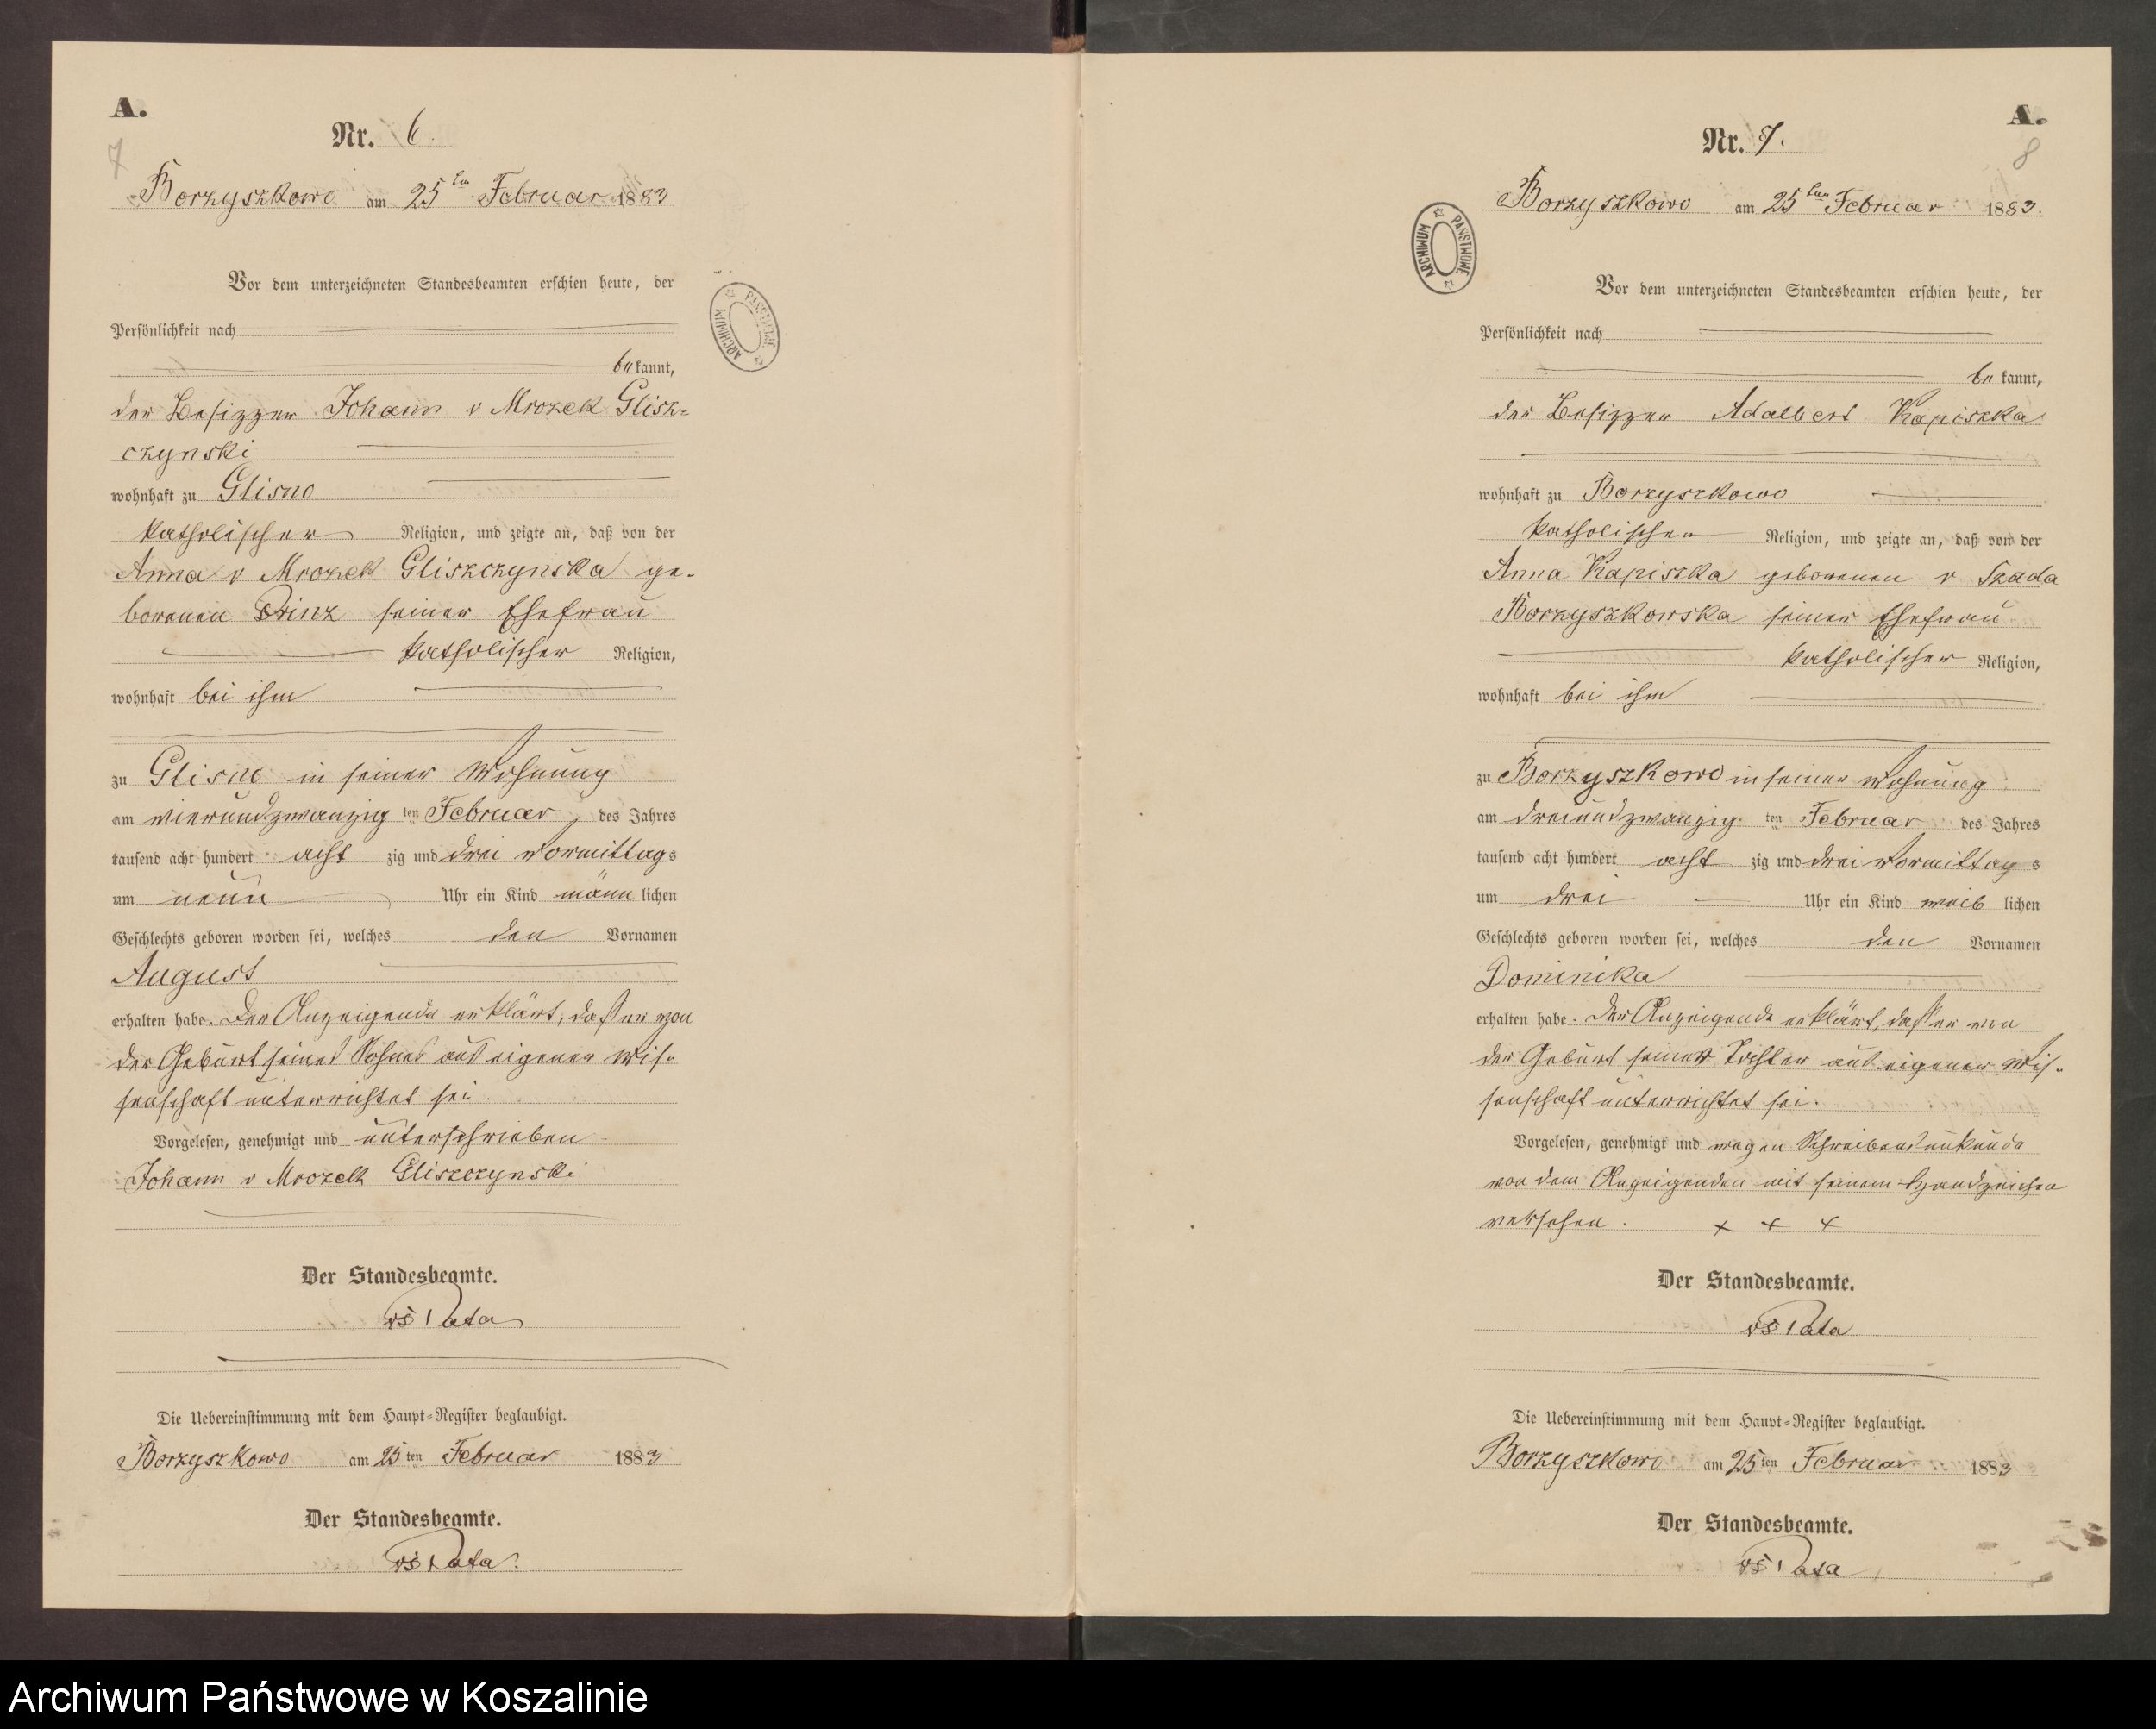 A.
7
Nr. 6.
Borzyszkowo am 25ten Februar 1883
Vor dem unterzeichneten Standesbeamten erschien heute, der
Persönlichkeit nach
be kannt,
der Besitzer Johann v Mrozek Glisz=
czynski
wohnhaft zu Glisno
katholischer Religion, und zeigte an, daß von der
Anna v Mrozek Gliszczynska ge-
borenen Prinz seiner Ehefrau
katholischer Religion,
wohnhaft bei ihm
zu Glisno in seiner Wohnung
am vierundzwanzig ten Februar des Jahres
tausend acht hundert acht zig und drei Vormittags
um neun Uhr ein Kind männ lichen
Geschlechts geboren worden sei, welches den Vornamen
August
erhalten habe. Der Anzeigende erklärt, daß er von
der Geburt seines Sohnes aus eigener Wis-
senschaft unterrichtet sei.
Vorgelesen, genehmigt und unterschrieben
Johann v Mrozek Gliszczynski
Der Standesbeamte.
Die Uebereinstimmung mit dem Haupt=Register beglaubigt.
Borzyszkowo am 25ten Februar 1883
Der Standesbeamte.
ARCHIWUM PAŃSTWOWE
A.
8
Nr. 7.
Borzyszkowo am 25ten Februar 1883.
ARCHIWUM PAŃSTWOWE
Vor dem unterzeichneten Standesbeamten erschien heute, der
Persönlichkeit nach
be kannt,
der Besitzer Adalbert Kapiszka
wohnhaft zu Borzyszkowo
katholischer Religion, und zeigte an, daß von der
Anna Kapiszka geborenen v Szada
Borzyszkowska seiner Ehefrau
katholischer Religion,
wohnhaft bei ihm
zu Borzyszkowo in seiner Wohnung
am dreiundzwanzig ten Februar des Jahres
tausend acht hundert acht zig und drei Vormittag s
um drei Uhr ein Kind weib lichen
Geschlechts geboren worden sei, welches den Vornamen
Dominika
erhalten habe. Der Anzeigende erklärt, daß er von
der Geburt seiner Tochter aus eigener Wis-
senschaft unterrichtet sei.
Vorgelesen, genehmigt und wegen Schreibensunkunde
von dem Anzeigenden mit seinem Handzeichen
versehen. + + +
Der Standesbeamte.
Die Uebereinstimmung mit dem Haupt=Register beglaubigt.
Borzyszkowo am 25ten Februar 1883
Der Standesbeamte.
Archiwum Państwowe w Koszalinie